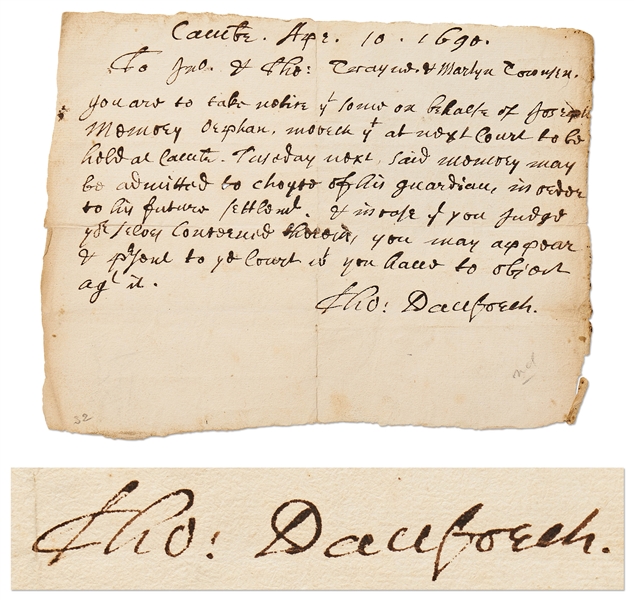 Camb. Apr. 10. 1690.
To Jno. & Tho: Twayne. & Martyn Townsen.
you are to take notice yt some on behalfe of Joseph
Memory Orphan, moveth yt at next Court to be
held at Camb. Tuesday next, said memory may
be admitted to choyse of his guardian, in order
to his future settlemt. & in case yt you Judge
yorselves Concerned therein, you may appear
& prsent to ye Court wt you have to object
agt it.
Tho: Danforth.
32
Tho: Danforth.